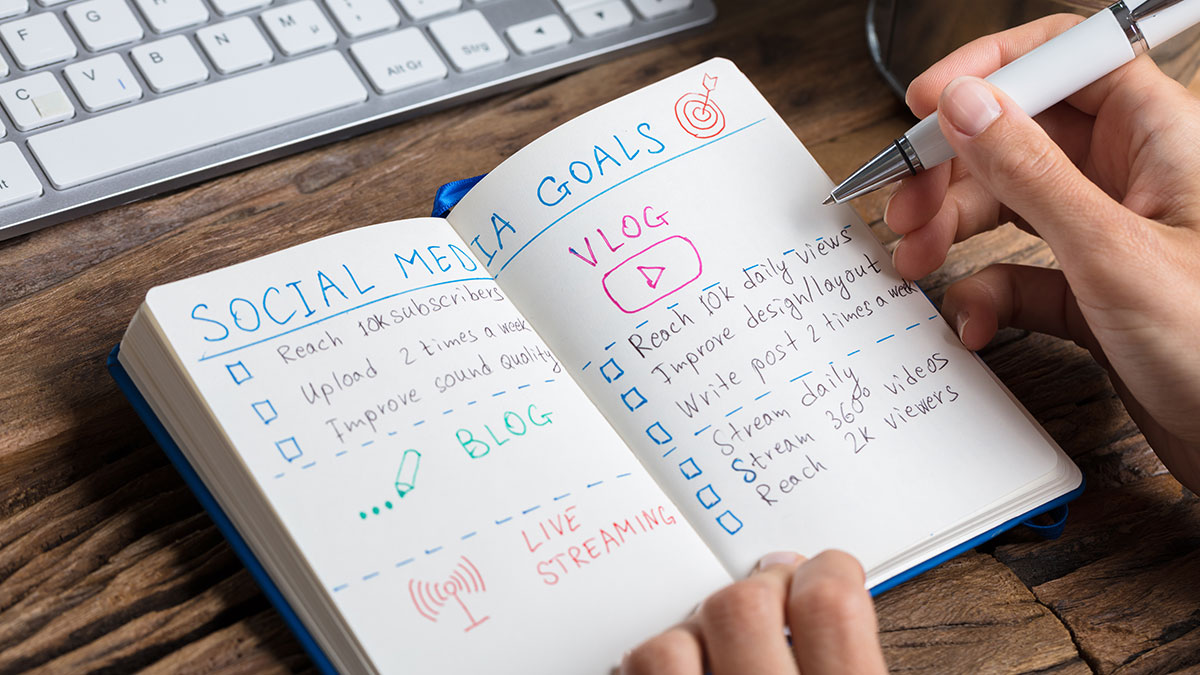 F G H
C V B N M µ Alt Gr Strg
SOCIAL MEDIA GOALS
Reach 10k subscribers
Upload 2 times a week
Improve sound quality
BLOG
LIVE
STREAMING
VLOG
Reach 10k daily views
Improve design/layout
Write post 2 times a week
Stream daily
Stream 360° videos
Reach 2k viewers